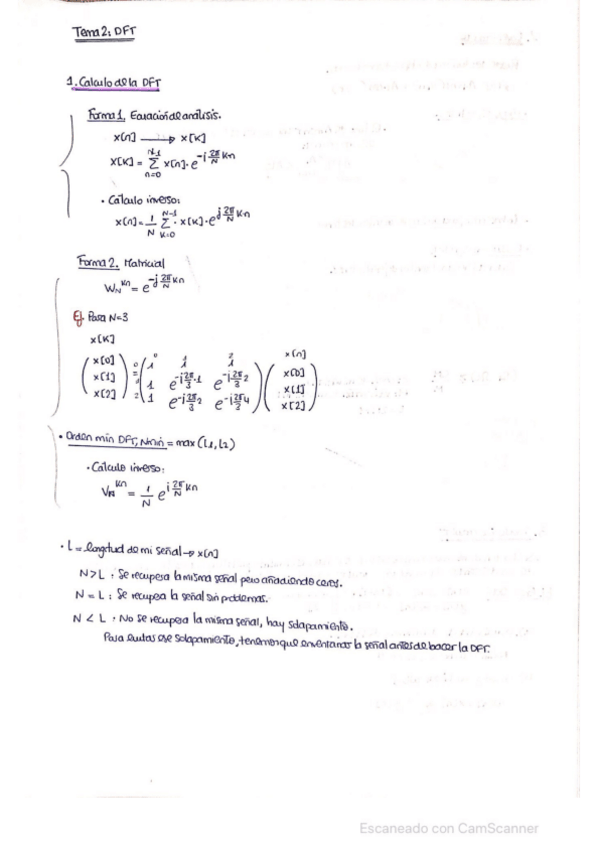 Tema 2: DFT
1. Calculo de la DFT
Forma 1. Ecuación de análisis.
x[n] ⟶ x[k]
x[k] = Σ_{n=0}^{N-1} x[n]·e^{-j 2π/N kn}
· Cálculo inverso:
x[n] = 1/N Σ_{k=0}^{N-1} · x[k]·e^{j 2π/N kn}
Forma 2. Matricial
W_N^{kn} = e^{-j 2π/N kn}
Ej. Para N=3
x[k]
x[n]
0 1 2
( x[0] ) 0 ( 1 1 1 ) ( x[0] )
( x[1] ) = 1 ( 1 e^{-j 2π/3 ·1} e^{-j 2π/3 2} ) ( x[1] )
( x[2] ) 2 ( 1 e^{-j 2π/3 2} e^{-j 2π/3 4} ) ( x[2] )
· Orden min DFT, Nmin = max (L1, L2)
· Calculo inverso:
V_N^{kn} = 1/N e^{j 2π/N kn}
· L = longitud de mi señal → x[n]
N > L : Se recupera la misma señal pero añadiendo ceros.
N = L : Se recupera la señal sin problemas.
N < L : No se recupera la misma señal, hay solapamiento.
Para evitar ese solapamiento, tenemos que enventanar la señal antes de hacer la DFT.
Escaneado con CamScanner